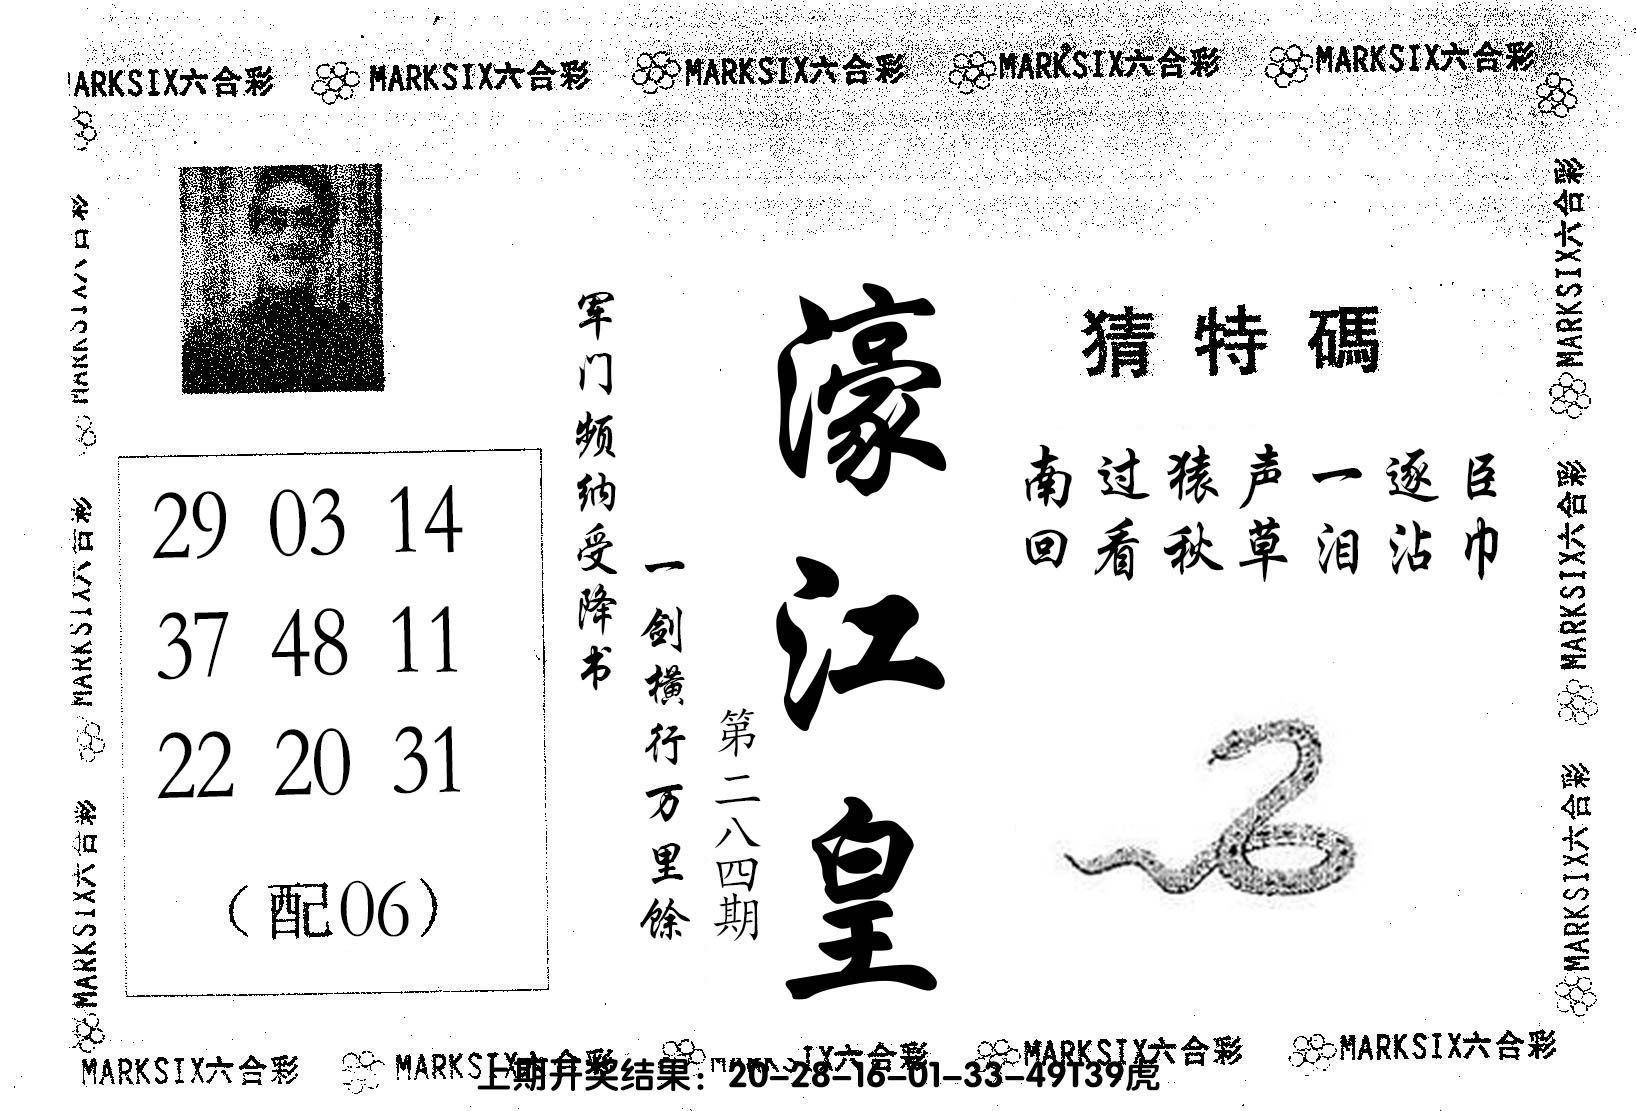 MARKSIX六合彩 MARKSIX六合彩 MARKSIX六合彩 MARKSIX六合彩
濠江皇
第二八四期
军门频纳受降书
一剑横行万里馀
猜特碼
南过猿声一逐臣
回看秋草泪沾巾
29 03 14
37 48 11
22 20 31
（配06）
MARKSIX六合彩
MARKSIX六合彩
MARKSIX六合彩
MARKSIX六合彩
MARKSIX六合彩
MARKSIX六合彩 MARKSIX六合彩 MARKSIX六合彩 MARKSIX六合彩
上期开奖结果：20-28-16-01-33-49T39虎